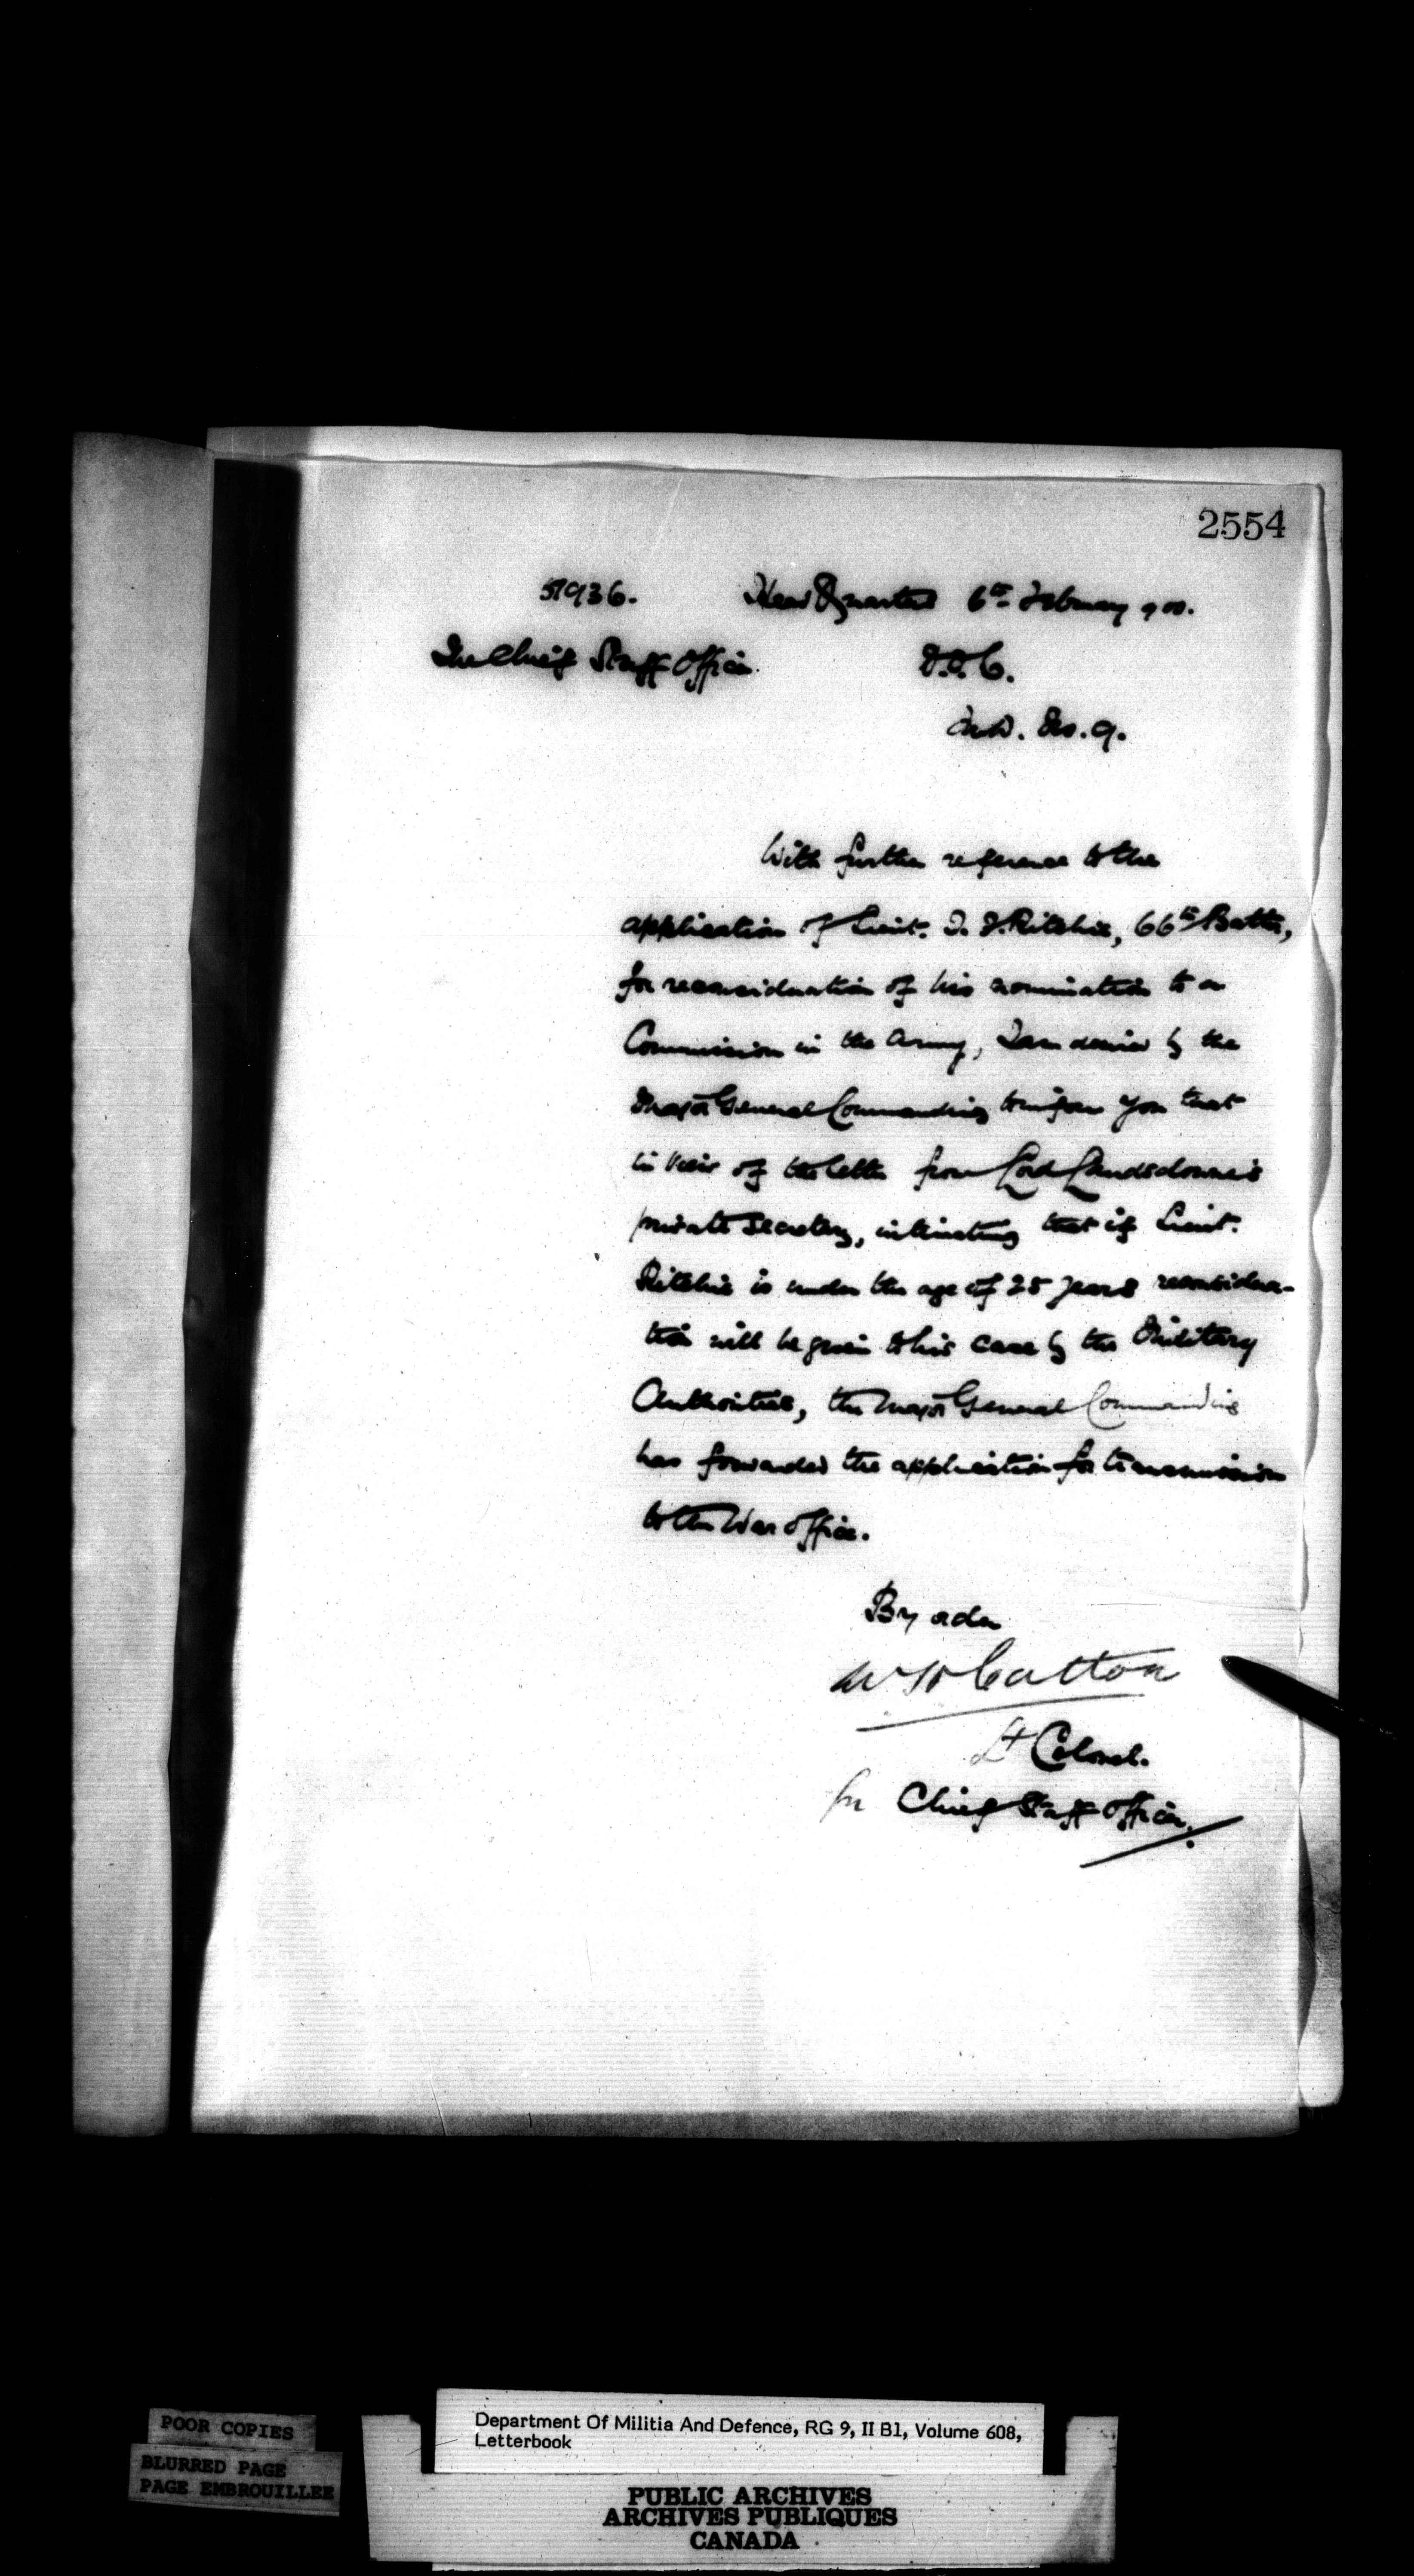 2554
51936. Head Quarters 6th February 900.
The Chief Staff Officer D.O.C.
M.D. No. 9.
With further reference to the
application of Lieut. Ritchie, 66th Battn,
for reconsideration of his nomination to a
Commission in the Army, I am desired by the
Major General Commanding to inform you that
in view of the letter from Lord Landsdowne's
private secretary, intimating that if Lieut.
Ritchie is under the age of 25 years reconsidera-
tion will be given to his case by the Military
Authorities, the Major General Commanding
has forwarded the application for transmission
to the War Office.
By order
Lt Colonel.
for Chief Staff Officer.
POOR COPIES
BLURRED PAGE
PAGE EMBROUILLEE
Department Of Militia And Defence, RG 9, II B1, Volume 608,
Letterbook
PUBLIC ARCHIVES
ARCHIVES PUBLIQUES
CANADA